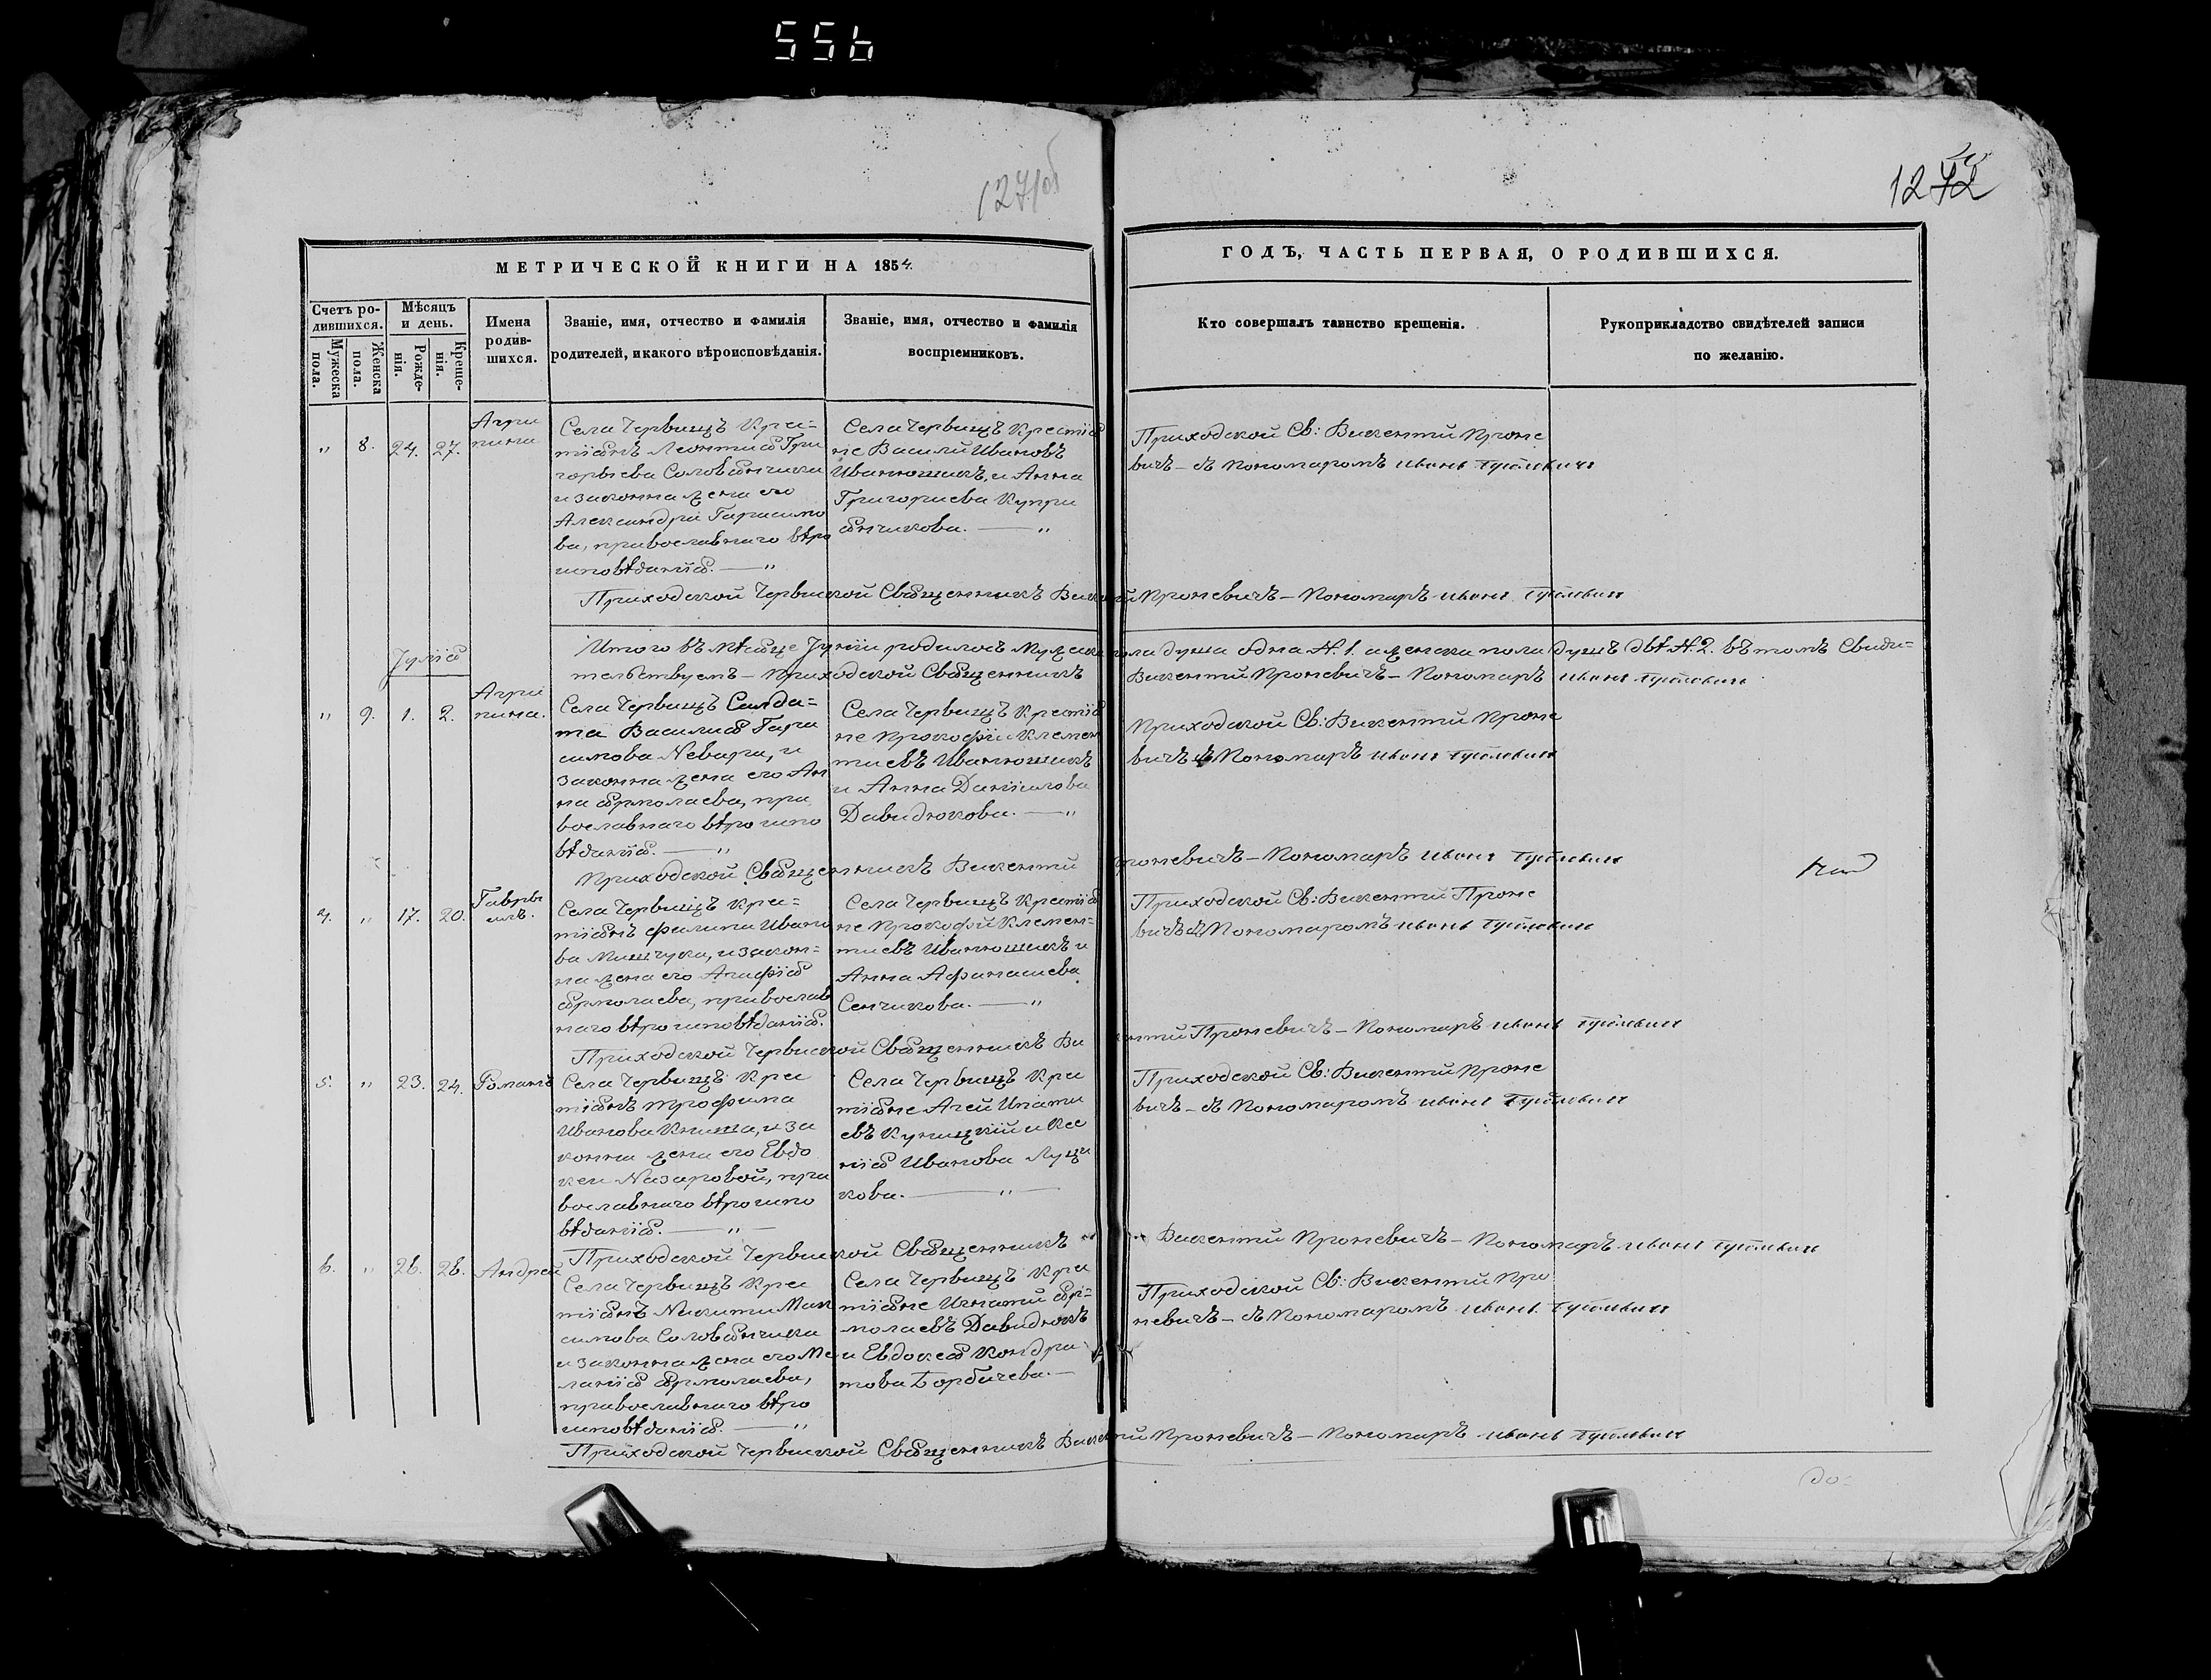 556
1271об
1272
МЕТРИЧЕСКОЙ КНИГИ НА 1854
ГОДЪ, ЧАСТЬ ПЕРВАЯ, О РОДИВШИХСЯ.
Счетъ ро-
дившихся.
Мужеска
пола.
Женска
пола.
Мѣсяцъ
и день.
Рожде-
нія.
Креще-
нія.
Имена
родив-
шихся.
Званіе, имя, отчество и фамилія
родителей, и какого вѣроисповѣданія.
Званіе, имя, отчество и фамилія
воспріемниковъ.
Кто совершалъ таинство крещенія.
Рукоприкладство свидѣтелей записи
по желанію.
„ 8. 24. 27.
Агри
пина
Села Червищъ Крес=
тіянъ Леонтія Гри
горьева Соловянчика
и законна жена его
Александрія Гарасимо
ва, православнаго вѣро
исповѣданія. — „
Села Червищъ Крестія
не Васили Ивановъ
Иванюшикъ, и Анна
Григориева Купри
янчикова. — „
Приходской Св: Викентий Проне
вичъ – съ Пономаромъ Иванъ
Приходской Червиской Священникъ Викентий Проневичъ – Пономаръ Иванъ
Итого въ мѣсяце Іунии родилось мужеска пола душа одна №. 1. а женска пола душъ двѣ №. 2. въ томъ Свиди=
тельствуемъ – Приходской Священникъ Викентий Проневичъ – Пономаръ Иванъ
Іулія
„ 9. 1. 2.
Агри
пина.
Села Червищъ Салда=
та Василия Гара
симова Невара, и
законна жена его Ан
на Ярмолаева, пра
вославнаго вѣро испо
вѣданія. — „
Села Червищъ Крестія
не Прокофіи Клемен
тиевъ Иванюшикъ
и Анна Даніилова
Давидюкова. — „
Приходской Св: Викентий Проне
вичъ съ Пономаръ Иванъ
Приходской Священникъ Викентий Проневичъ – Пономаръ Иванъ
4. „ 17. 20.
Гаврі
илъ.
Села Червищъ Крес=
тіянъ Филипа Ивано
ва Мишчука, и закон=
на жена его Агафія
Ярмолаева, православ
наго вѣро исповѣданія.
Села Червищъ Крестія
не Прокофи Клемен=
тиевъ Иванюшикъ и
Анна Афанасиева
Сенчикова. — „
Приходской Св: Викентий Проне
вичъ съ Пономаромъ Иванъ
Приходской Червиской Священникъ Викентий Проневичъ – Пономаръ Иванъ
5. „ 23. 24.
Романъ
Села Червищъ Крес
тіянъ Трофима
Иванова Книша, и за
конна жена его Евдо
кеи Назаровой, пра
вославнаго вѣро испо
вѣданія. — „
Села Червищъ Крес
тіяне Агей Ипати
евъ Куницкій и Ксе
нія Иванова Луци
кова. — „
Приходской Св: Викентий Проне
вичъ – съ Пономаромъ Иванъ
Приходской Червиской Священникъ Викентий Проневичъ – Пономаръ Иванъ
6. „ 26. 28.
Андрей
Села Червищъ Крес
тіянъ Никити Мак
симова Соловянчика
и законна жена его Ме
ланія Ярмолаева,
православнаго вѣро
исповѣданія. — „
Села Червищъ Крес
тіяне Игнатий Яр=
молаевъ Давидюкъ
и Евдокея Кондра
това Борбичева. —
Приходской Св: Викентий Про
невичъ – съ Пономаромъ Иванъ
Приходской Червиской Священникъ Викентий Проневичъ – Пономаръ Иванъ